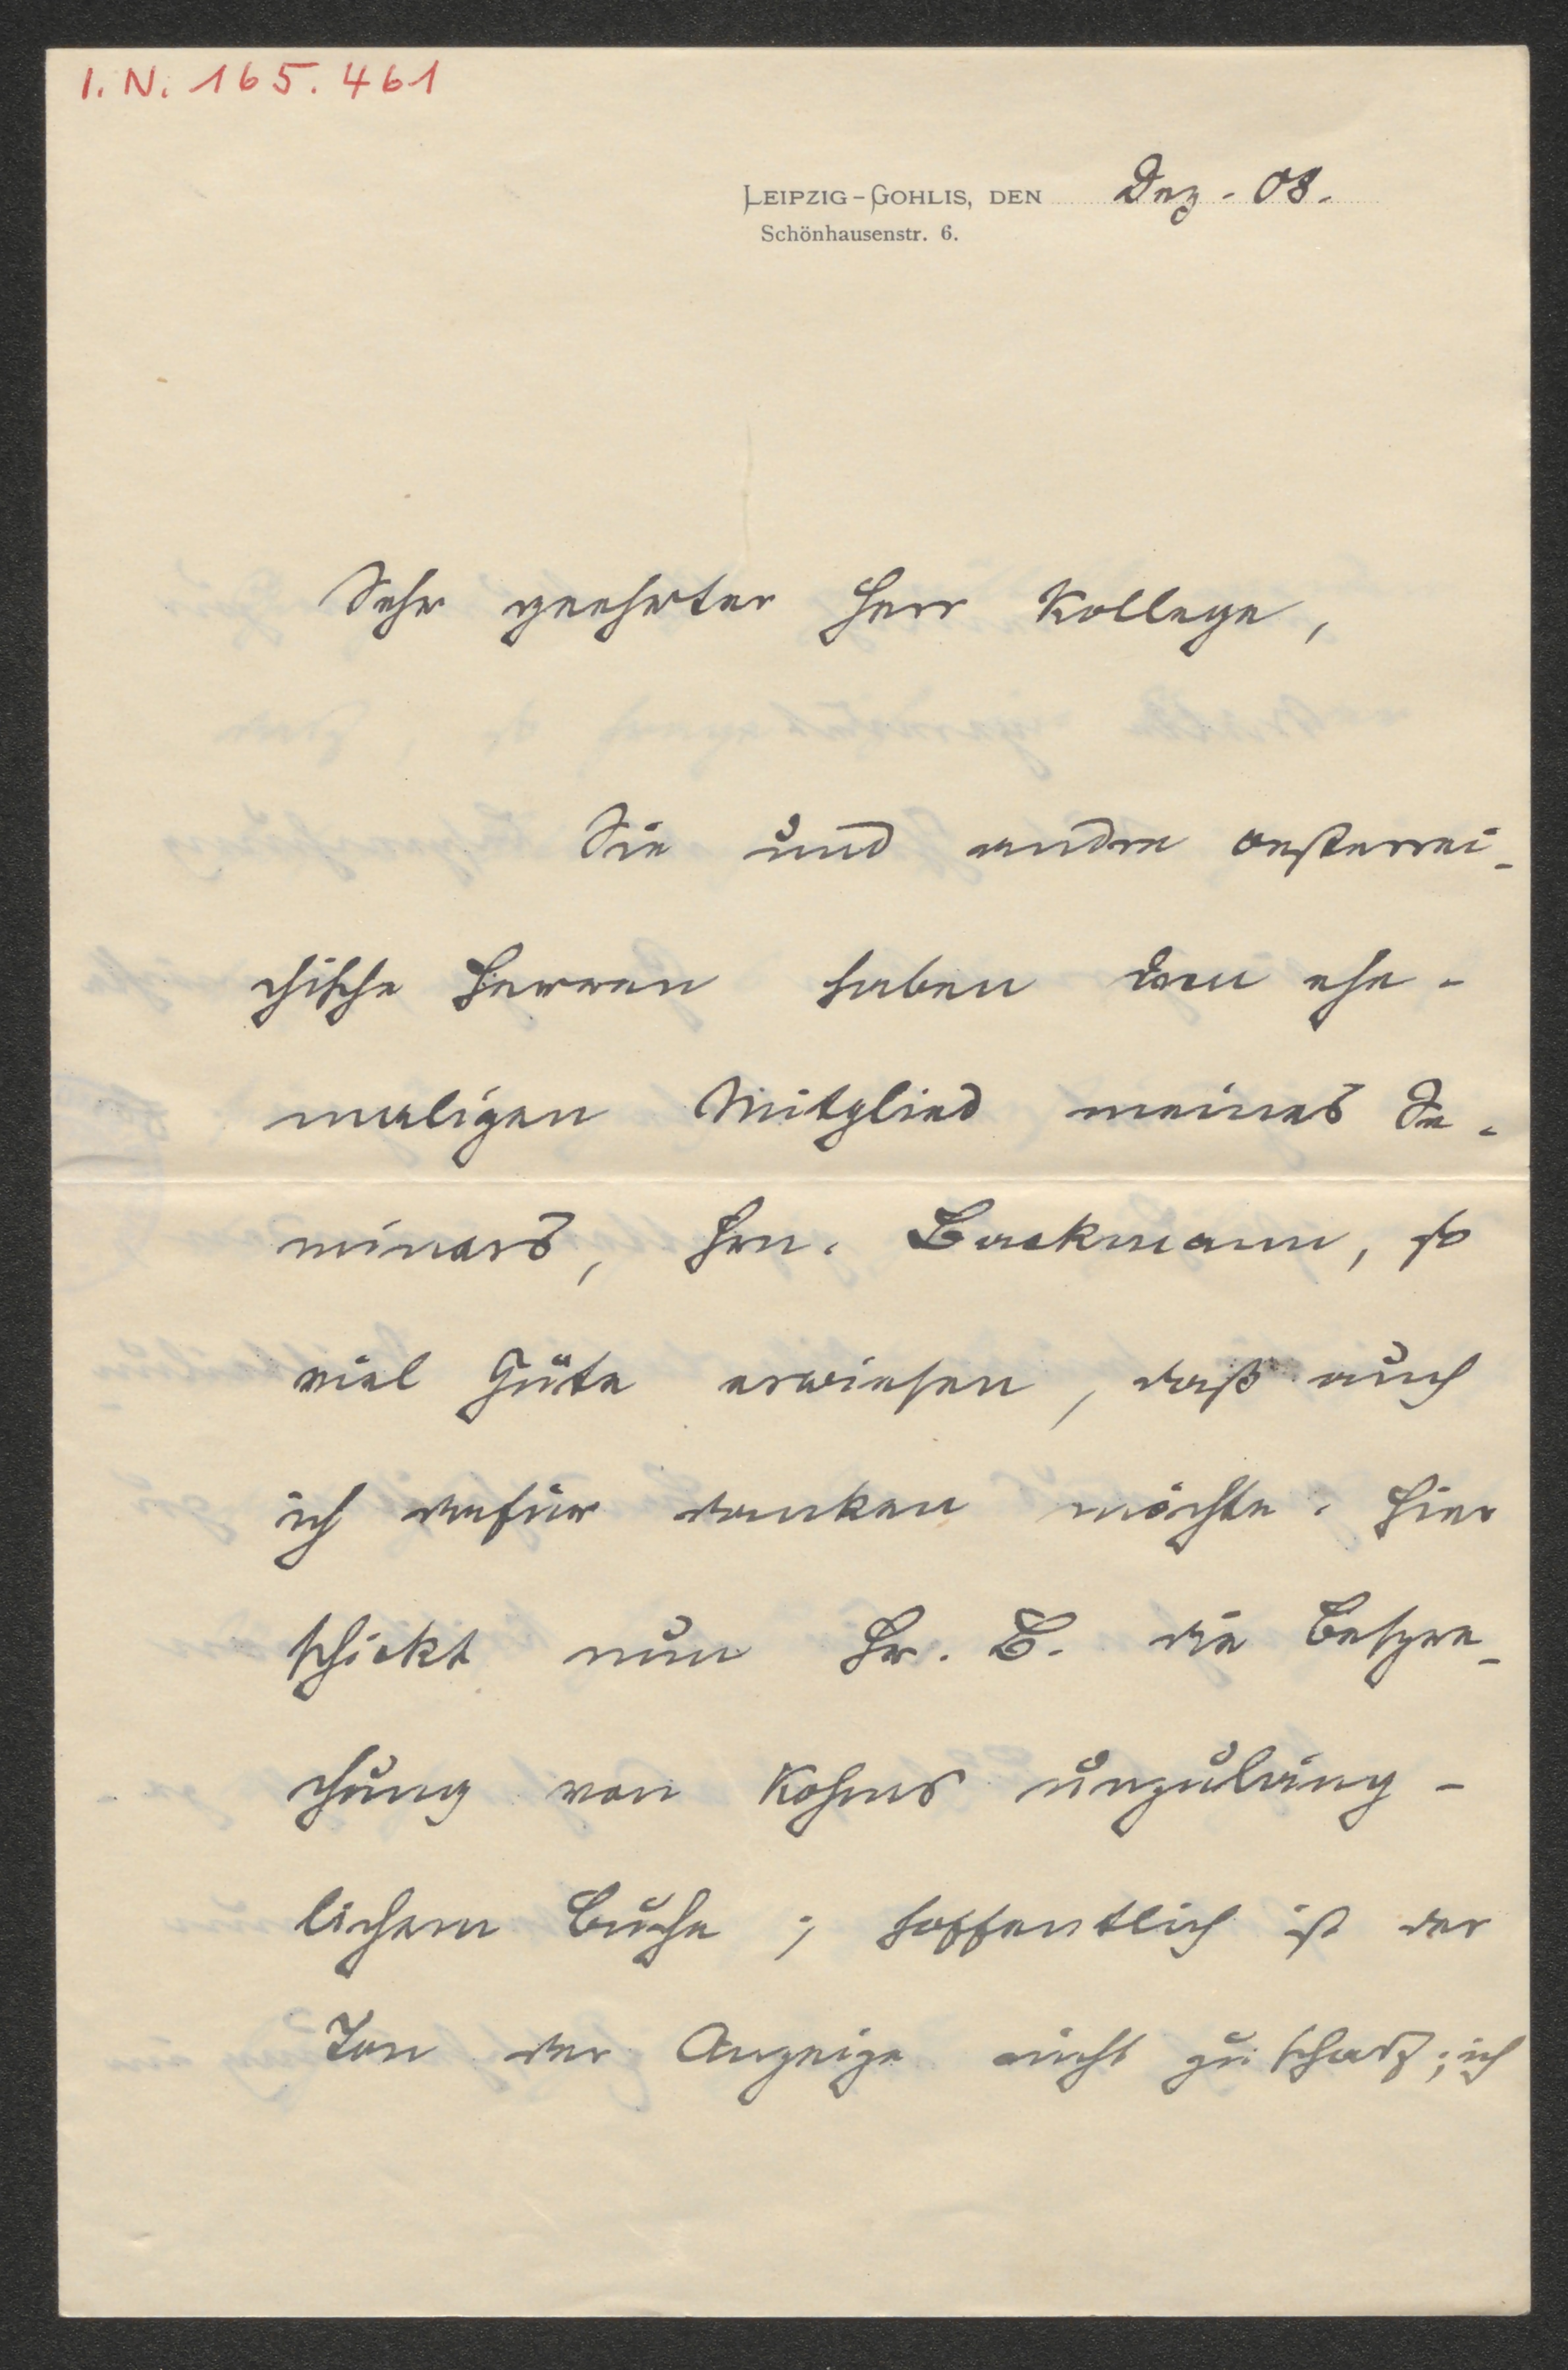 I. N. 165.461
LEIPZIG-GOHLIS, DEN Dez. 08.
Schönhausenstr. 6.
Sehr geehrter Herr Kollege,
Sie und andre oesterrei-
chische Herren haben dem ehe-
maligen Mitglied meines Se-
minars, Hrn. Backmann, so
viel Güte erwiesen, daß auch
ich dafür danken möchte. Hier
schickt nun Hr. B. die Bespre-
chung von Kohms unzuläng-
lichem Buche; hoffentlich ist der
Ton der Anzeige nicht zu scharf; ich